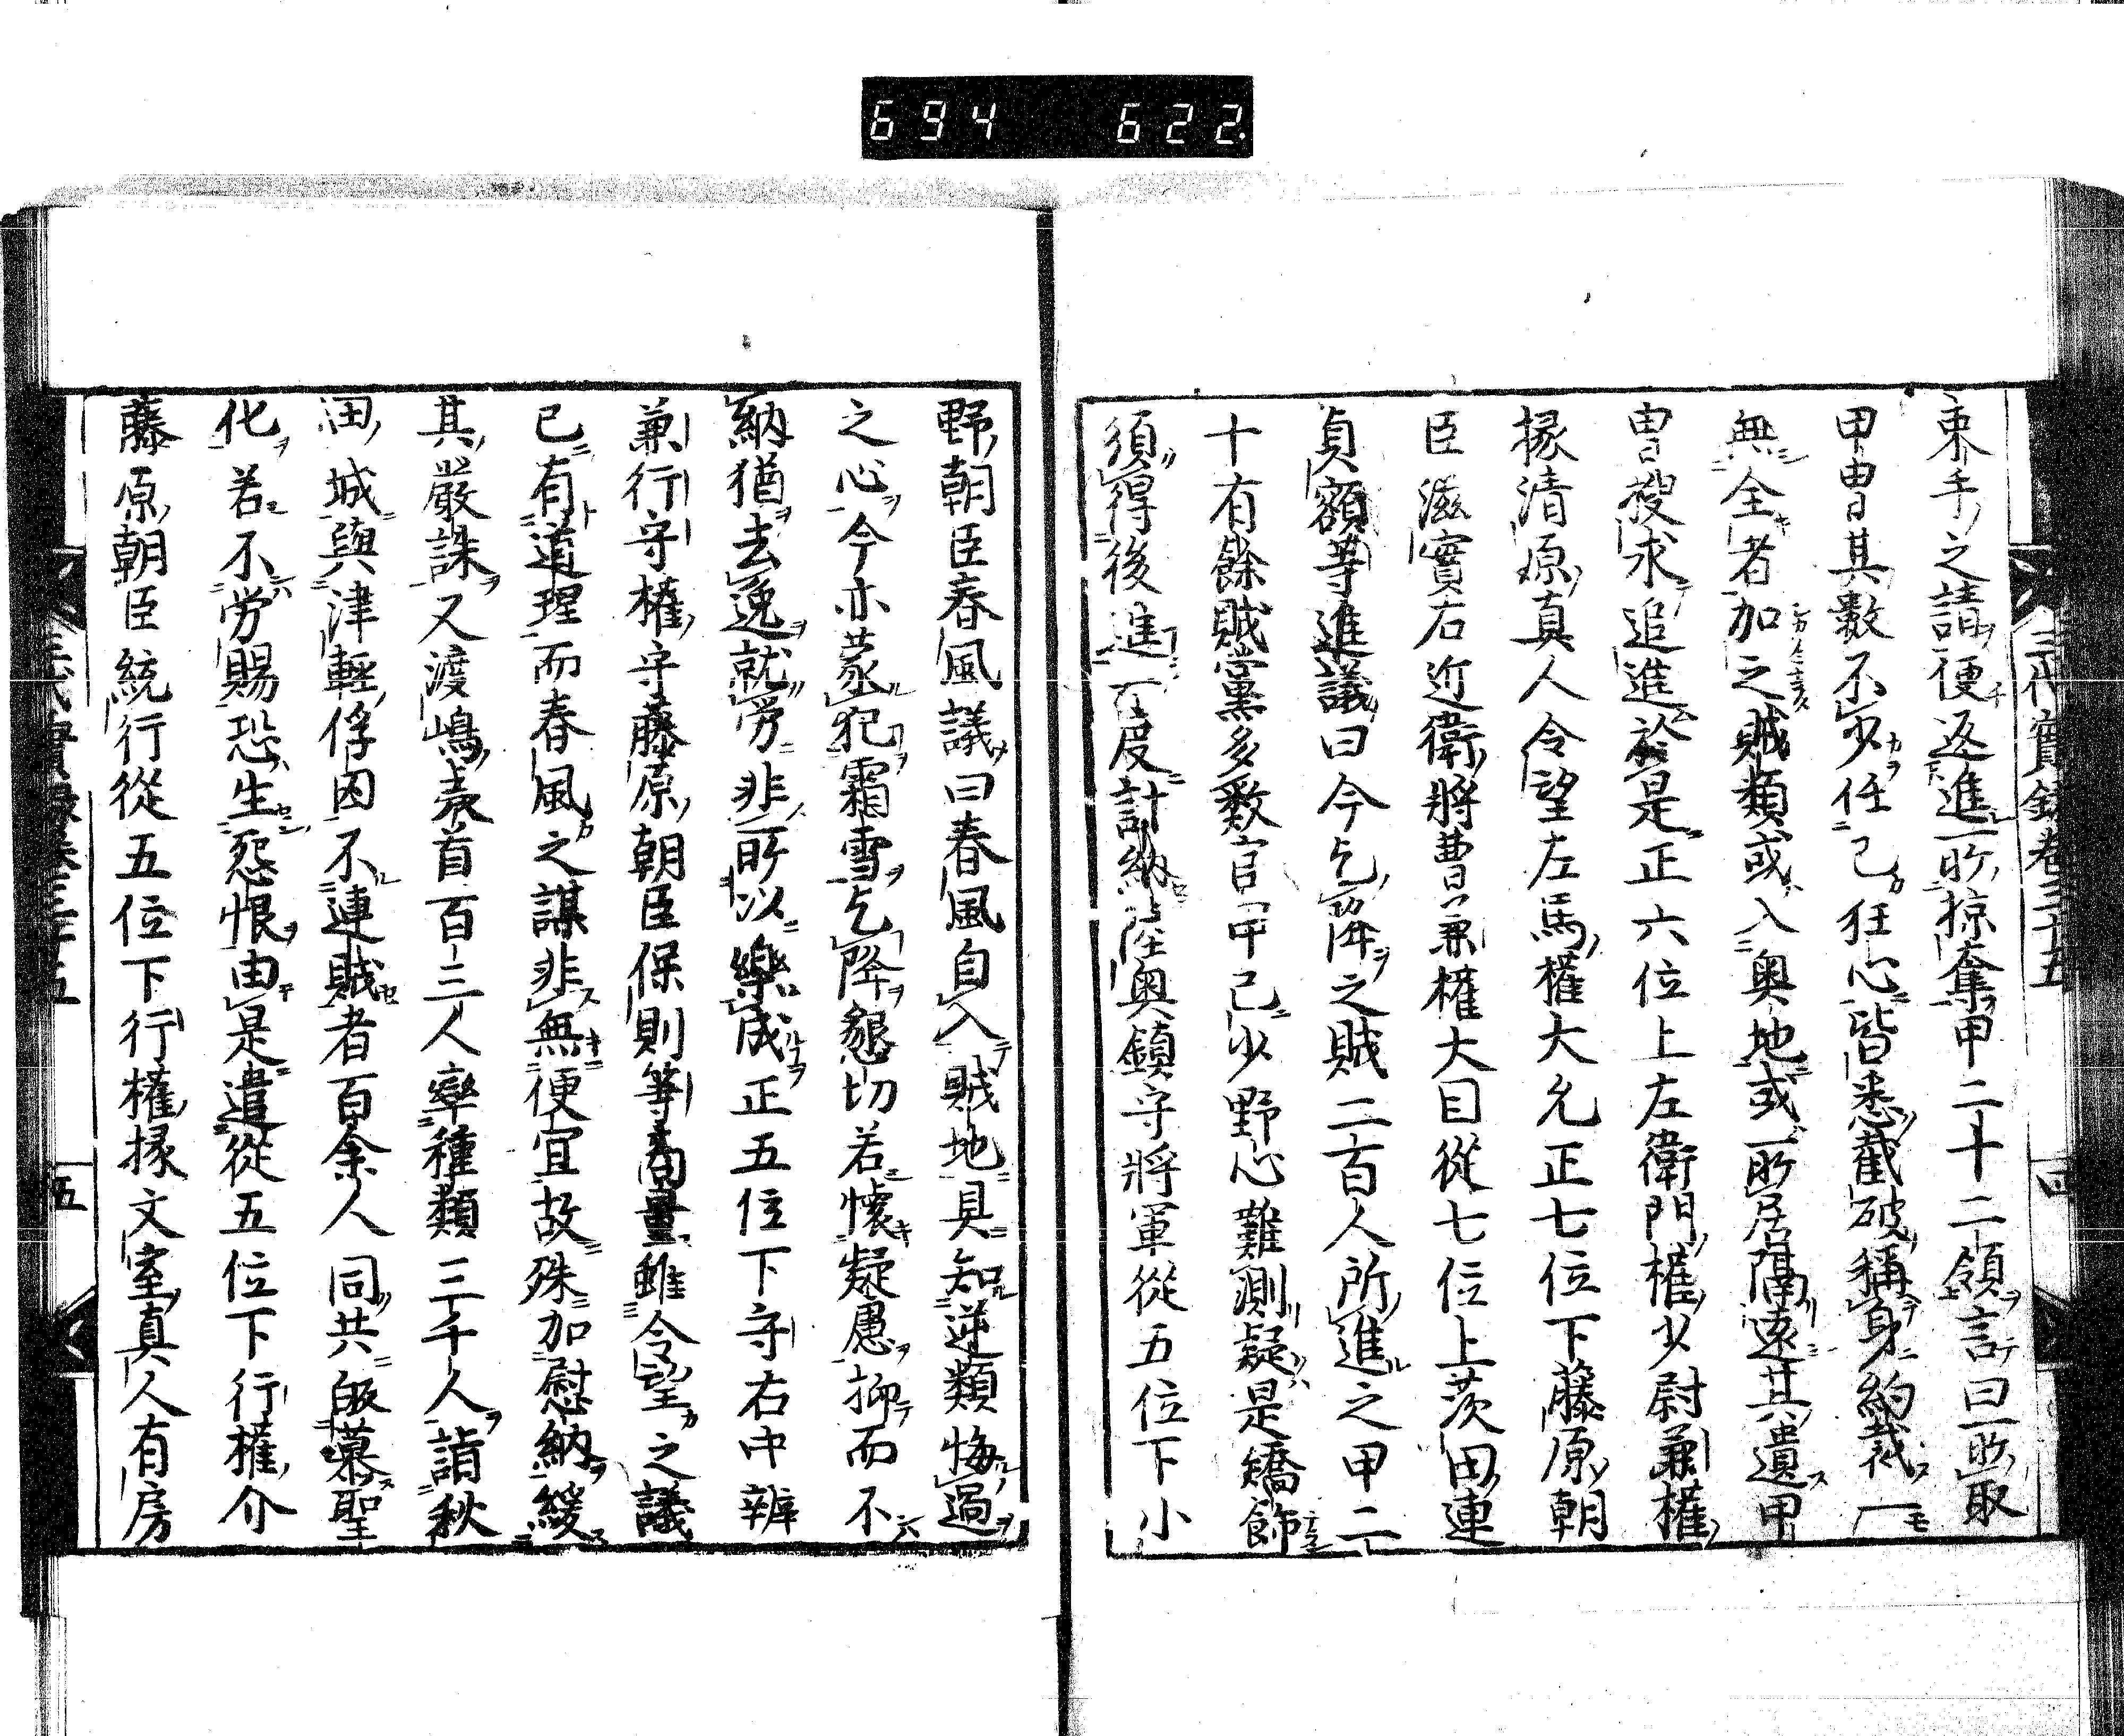 694 622
三代實録卷三十五 四
束手之請便返進所掠奪甲二十二領言曰所取
甲冑其數不少任己狂心皆悉截破稱身約裁一
無全者加之賊類或入奥地或所居隔遠其遺甲
冑搜求追進於是正六位上左衛門權少尉兼權
掾清原真人令望左馬權大允正七位下藤原朝
臣滋實右近衛將曹兼權大目從七位上茨田連
貞額等進議曰今乞降之賊二百人所進之甲二
十有餘賊黨多數官甲已少野心難測疑是矯飾
須得後進一度計納陸奥鎮守將軍從五位下小
野朝臣春風議曰春風自入賊地具知逆類悔過
之心今亦蒙犯霜雪乞降懇切若懷疑慮抑而不
納猶去逸就勞非所以樂成正五位下守右中辨
兼行守權守藤原朝臣保則等商量雖令望之議
已有道理而春風之謀非無便宜故殊加慰納緩
其嚴誅又渡嶋夷首百三人率種類三千人詣秋
田城與津輕俘囚不連賊者百余人同共皈慕聖
化若不勞賜恐生怨恨由是遣從五位下行權介
藤原朝臣統行從五位下行權掾文室真人有房
三代實録卷三十五 五